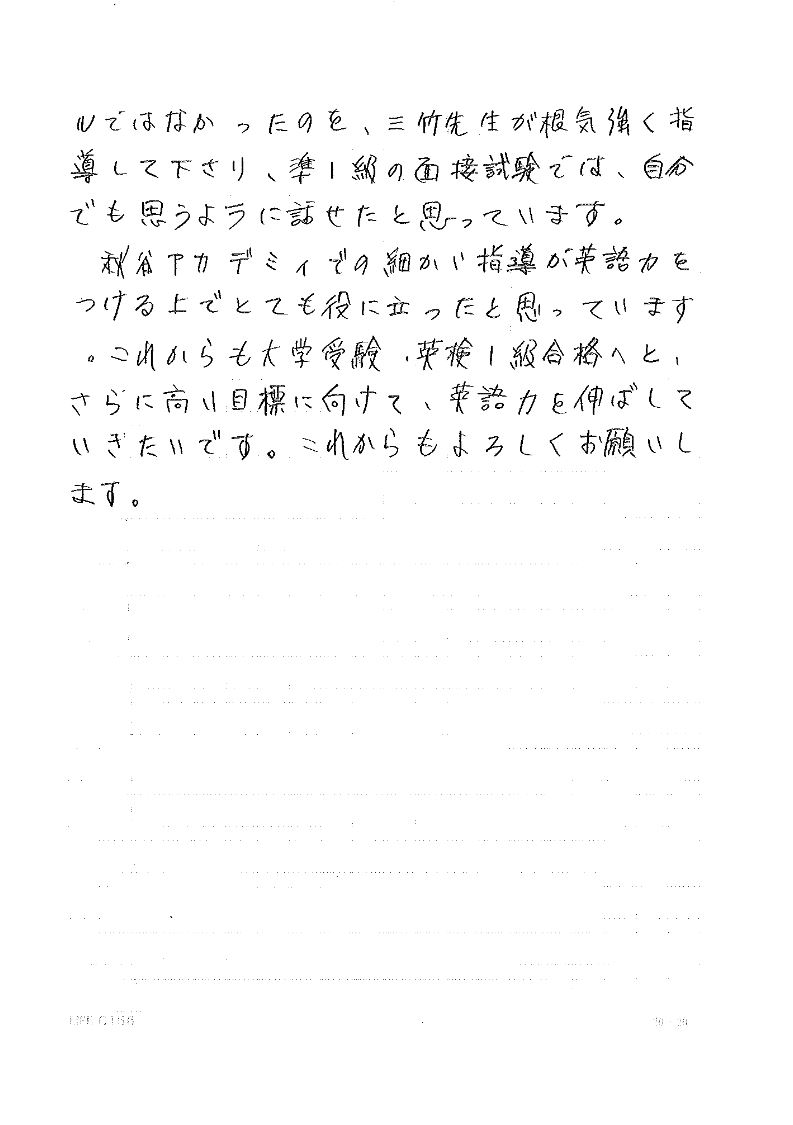 ルではなかったのを、三竹先生が根気強く指
導して下さり、準1級の面接試験では、自分
でも思うように話せたと思っています。
秋谷アカデミィでの細かい指導が英語力を
つける上でとても役に立ったと思っています
。これからも大学受験、英検1級合格へと、
さらに高い目標に向けて、英語力を伸ばして
いきたいです。これからもよろしくお願いし
ます。
LIFE C155